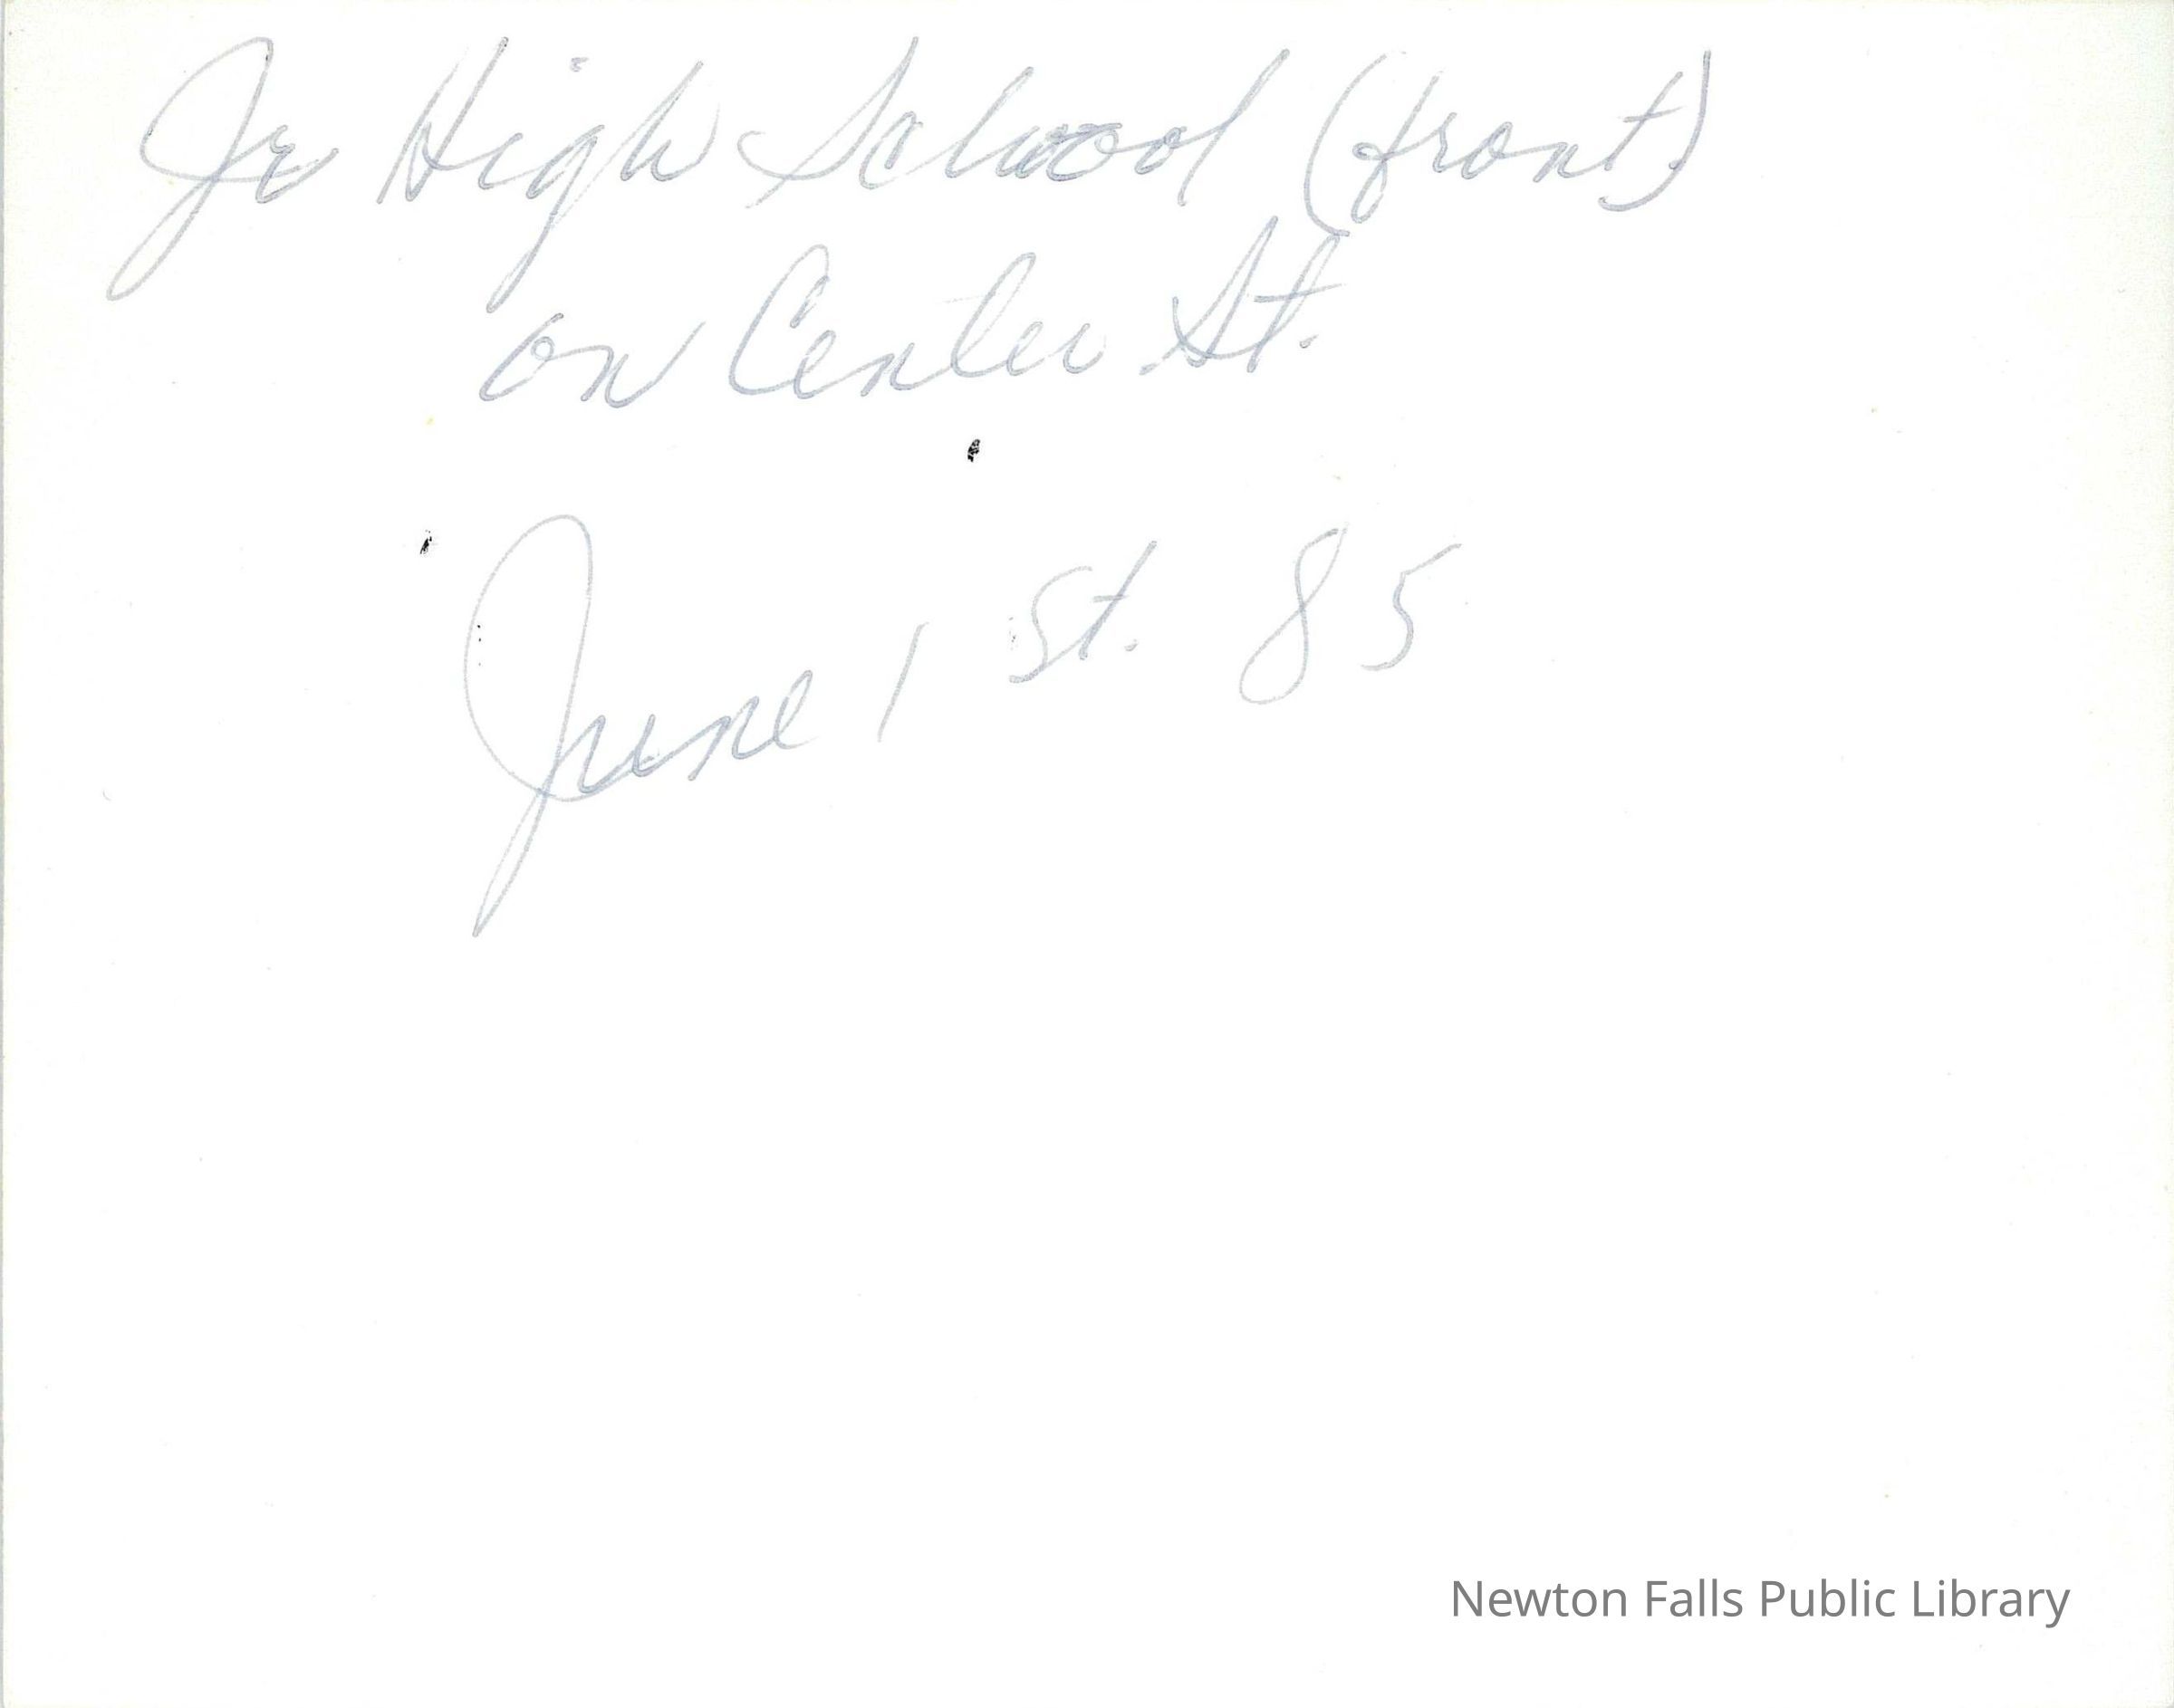 Jr High School (front)
on Center St.
June 1 St. 85
Newton Falls Public Library